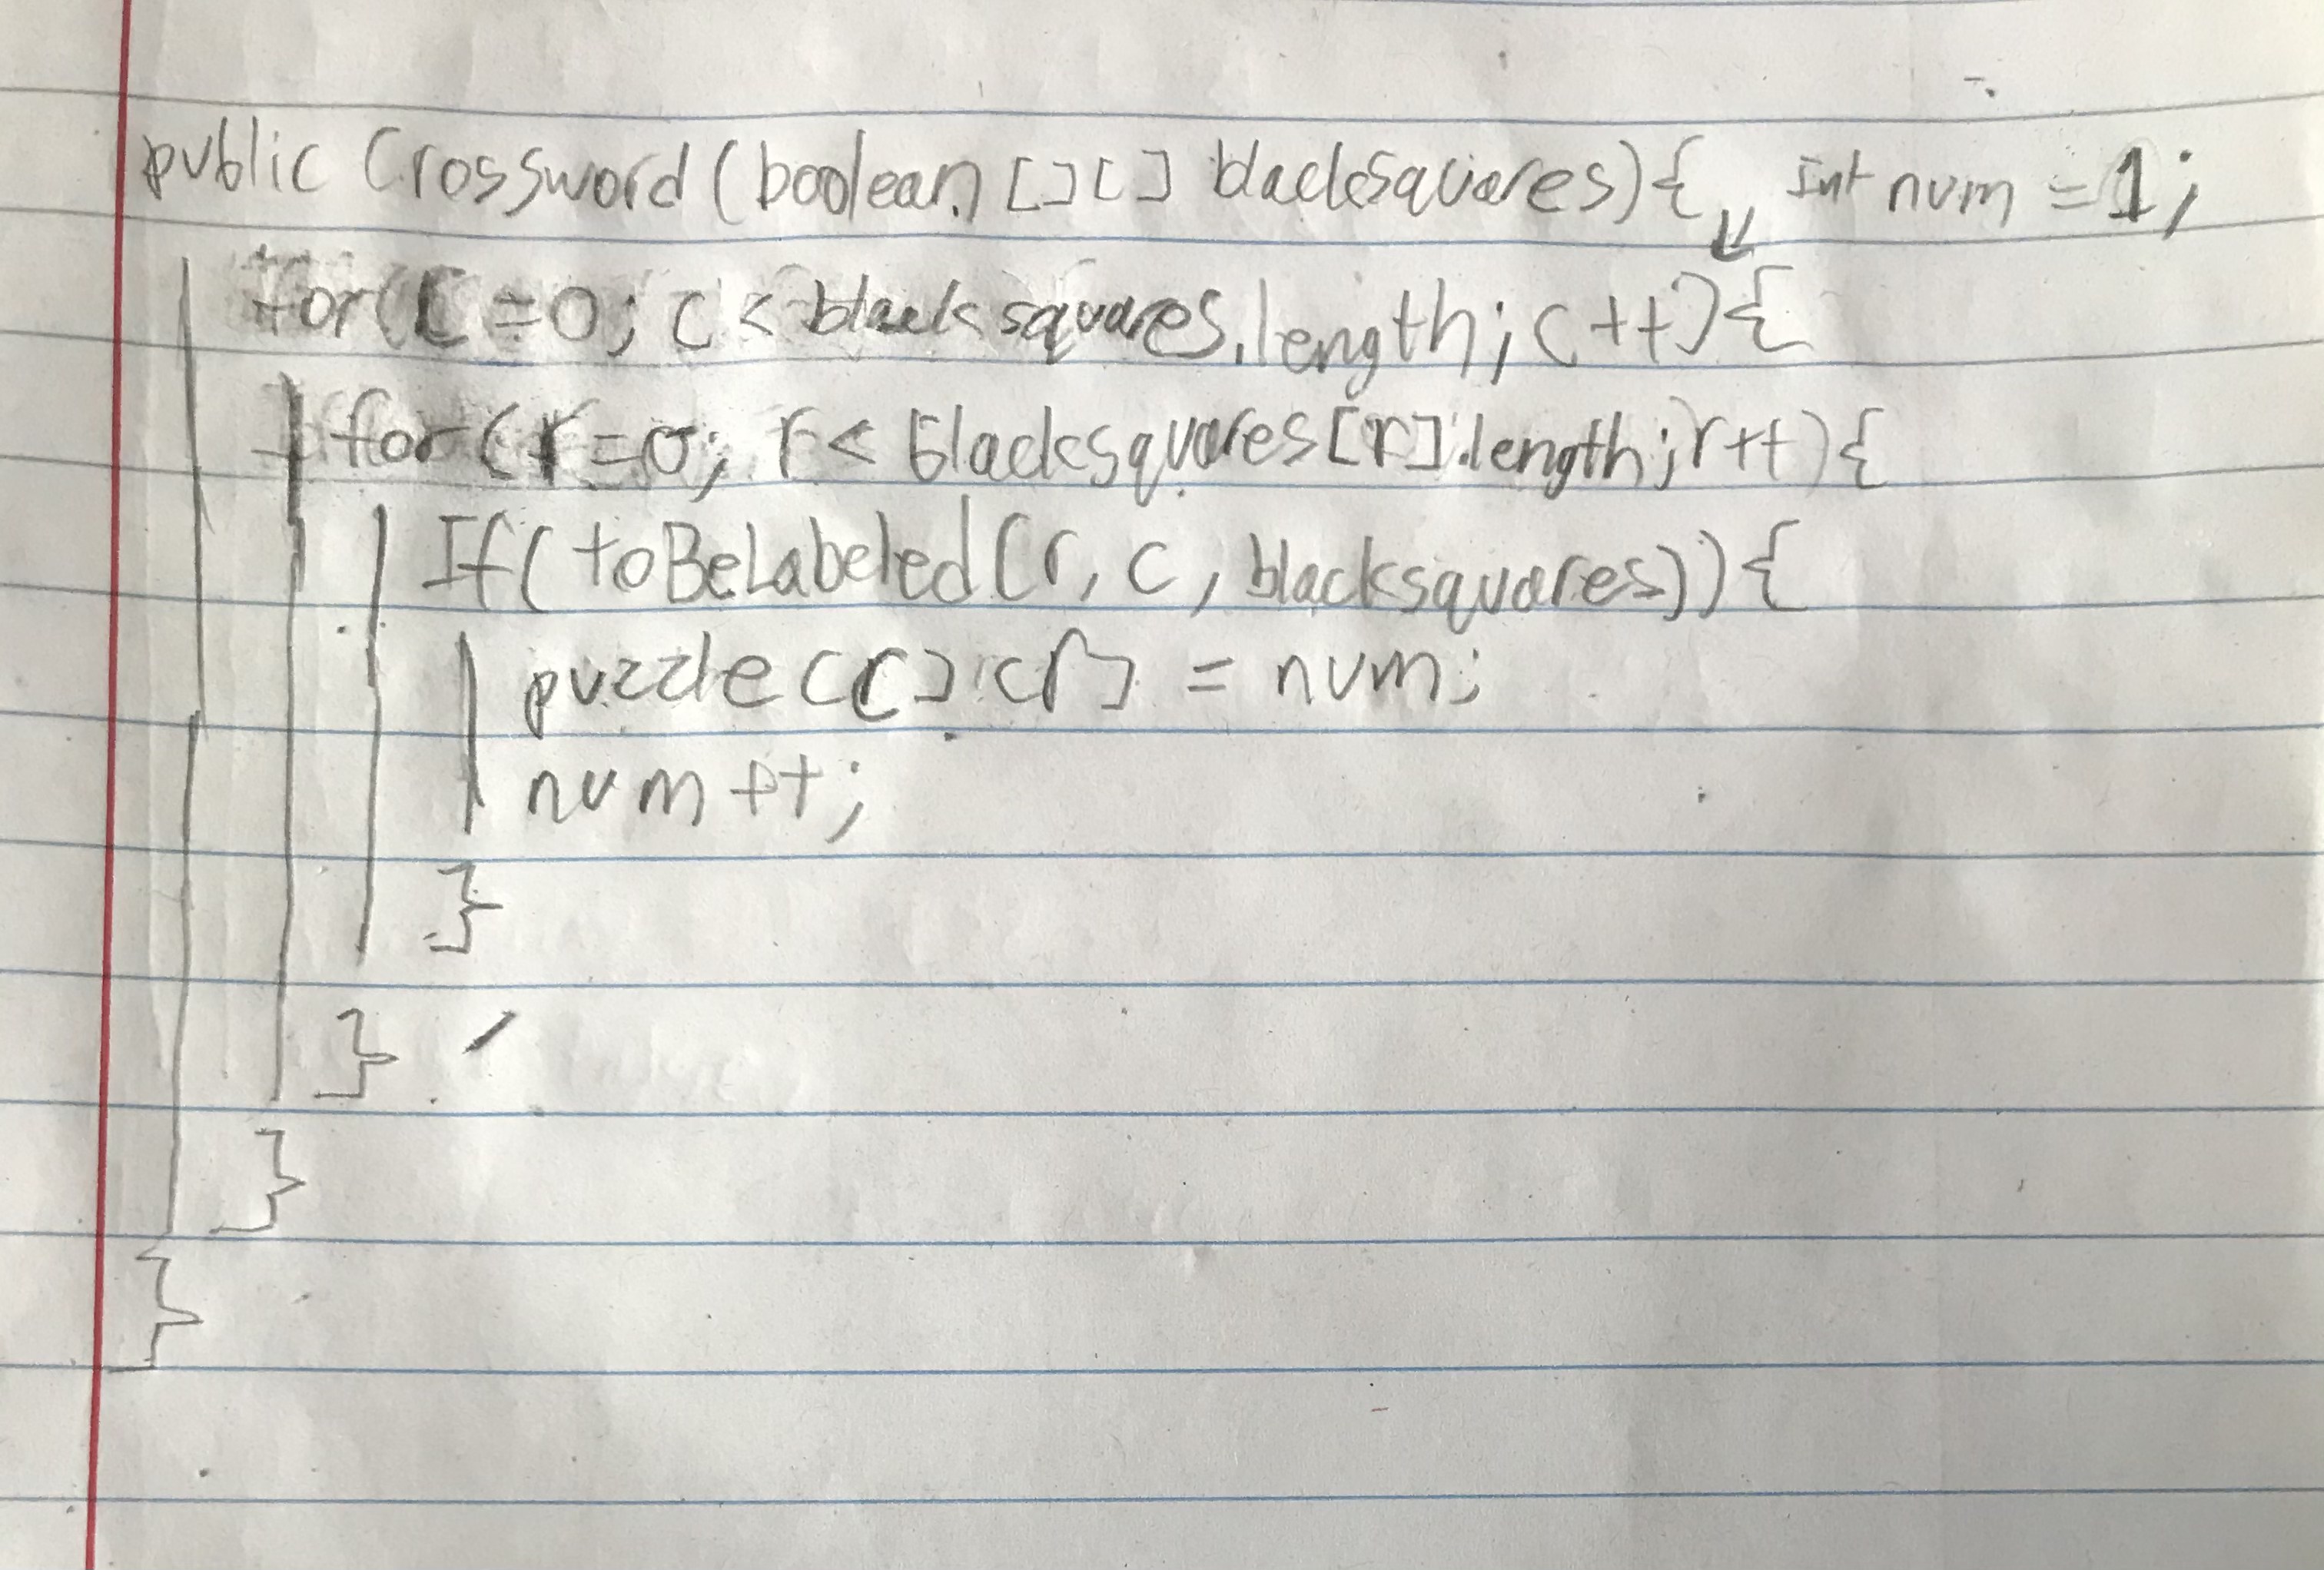 public Crossword (boolean [][] blacksquares){ Int num = 1;
for(c = 0; c < blacksquares.length; c++){
for (r=0; r < blacksquares[r].length; r++){
If( toBeLabeled (r, c, blacksquares)){
puzzle[c][r] = num;
num ++;
}
}
}
}